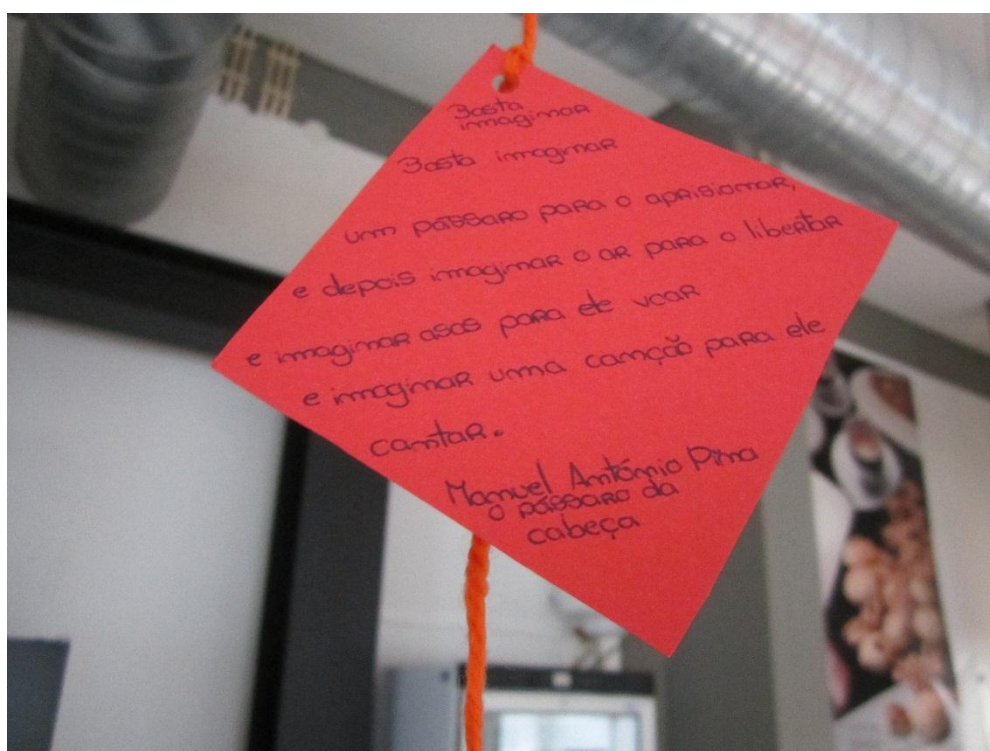 Basta
imaginar
Basta imaginar
um pássaro para o aprisionar,
e depois imaginar o ar para o libertar
e imaginar asas para ele voar
e imaginar uma canção para ele
cantar.
Manuel António Pina
O pássaro da
cabeça